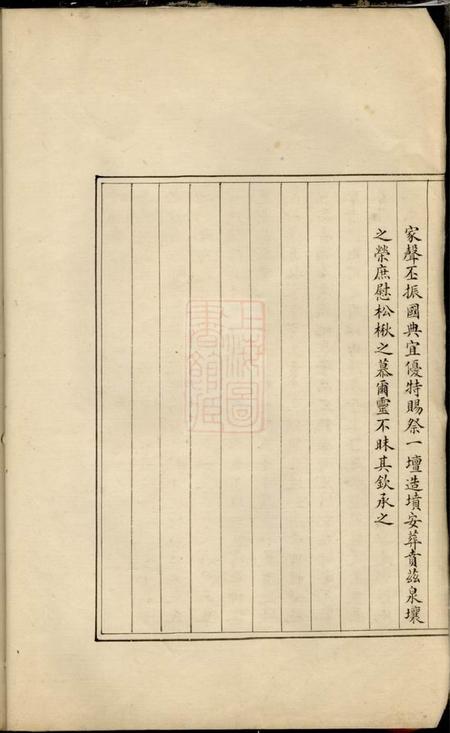 家聲丕振國典宜優特賜祭一壇造墳安葬賁茲泉壤
之榮庶慰松楸之慕爾靈不昧其欽承之
上海圖
書館藏